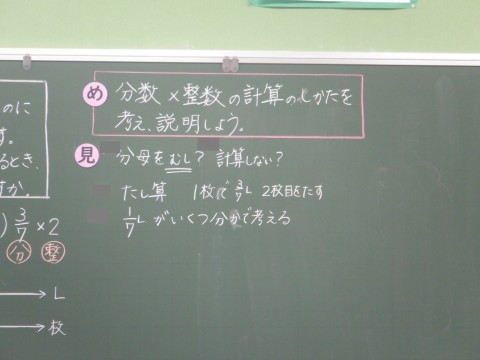 のに
す。
るとき、
すか。
) 3/7 × 2
分 整
→ L
→ 枚
め 分数×整数の計算のしかたを
考え、説明しよう。
見 分母をむし? 計算しない?
たし算 1枚で 3/7 L 2枚目をたす
1/7 L がいくつ分かで考える